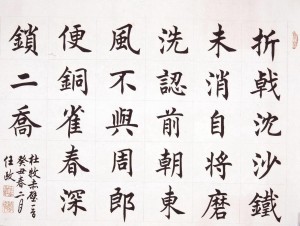 折戟沈沙鐵
未消自將磨
洗認前朝東
風不與周郎
便銅雀春深
鎖二喬
杜牧赤壁一首
癸丑春二月
任政